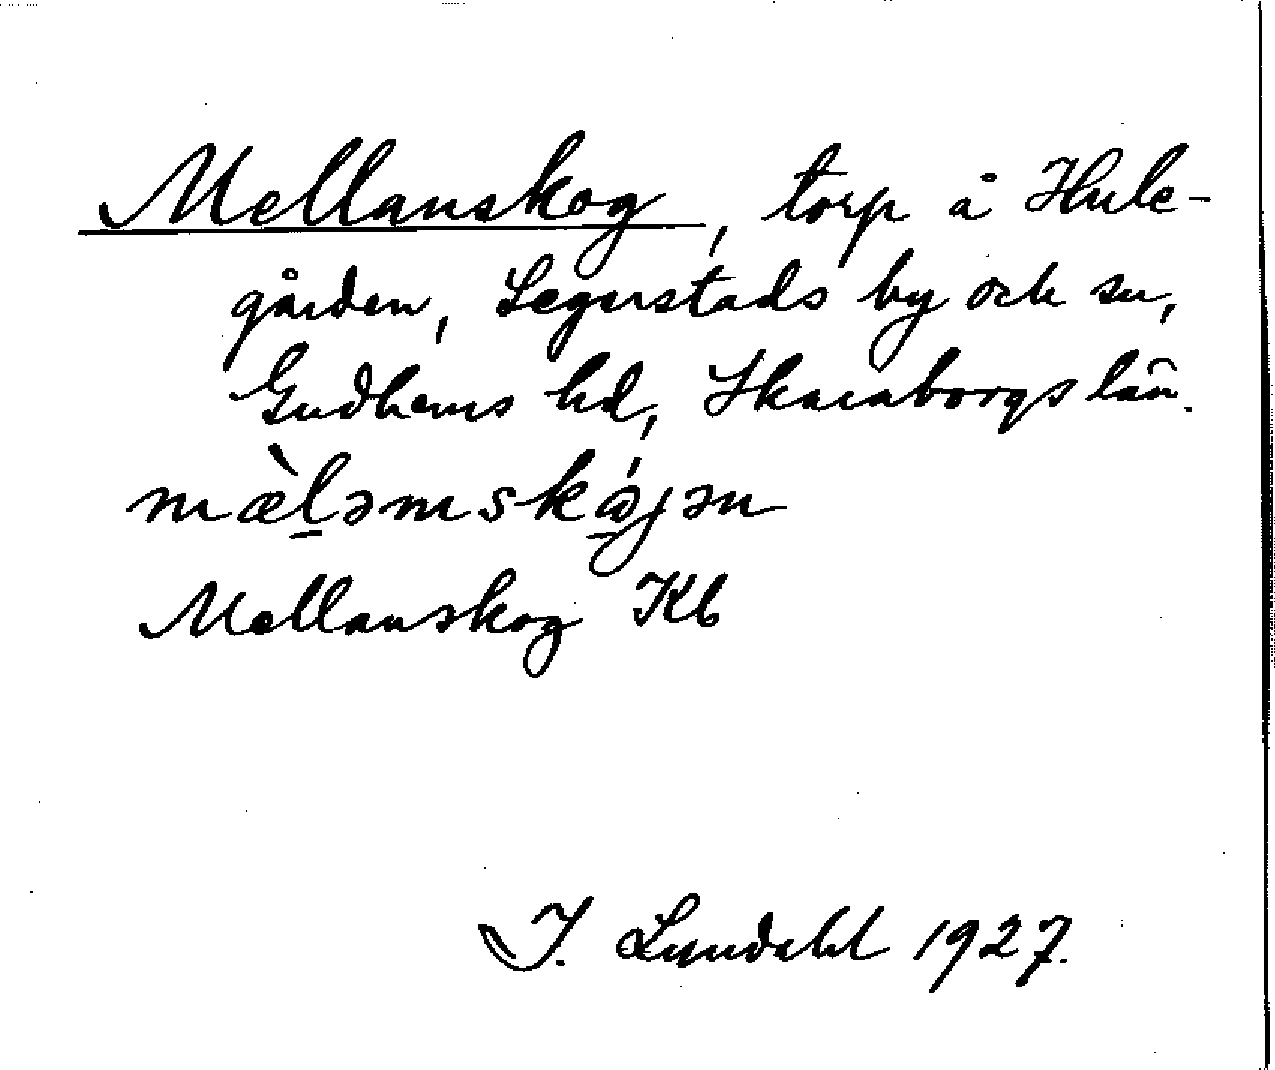 Mellanskog, torp å Hule-
gården, Segerstads by och sn,
Gudhems hd, Skaraborgs län.
mæ̀l̠əmskǻ̠jən
Mellanskog Kb
I. Lundahl 1927.